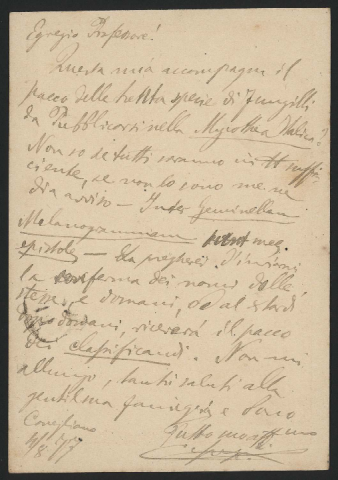 Egregio Professore!
Questa mia accompagna il
pacco delle trenta specie di funghi
da Pubblicarsi nella Mycotheca Italica.
Non so se tutti saranno in suffi-
ciente, se non lo sono me ne
dia avviso — Inter
Melanogrammam meg.
epistole — La pregherei d'inviarmi
la conferma dei nomi delle
stesse, e domani, od al tardi
dopodomani, riceverà il pacco
dei classificandi. Non mi
allungo, tanti saluti alla
gentilma famiglia e sono
Conegliano Tutto
4/8 77